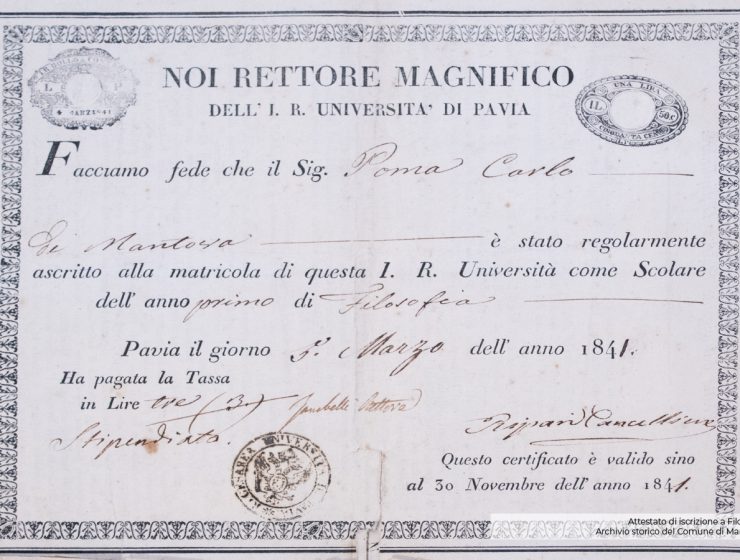 L P
4 MARZ1841
NOI RETTORE MAGNIFICO
DELL' I. R. UNIVERSITA' DI PAVIA
UNA LIRA
1L 50.C
CINQUANTA CENT
Facciamo fede che il Sig. Poma Carlo
di Mantova è stato regolarmente
ascritto alla matricola di questa I. R. Università come Scolare
dell' anno primo di Filosofia
Pavia il giorno 5. Marzo dell' anno 1841.
Ha pagata la Tassa
in Lire tre (3) Rettore
Stipendiato.
Ripari Cancelliere
Questo certificato è valido sino
al 30 Novembre dell' anno 1841.
Attestato di iscrizione a Filo
Archivio storico del Comune di Ma